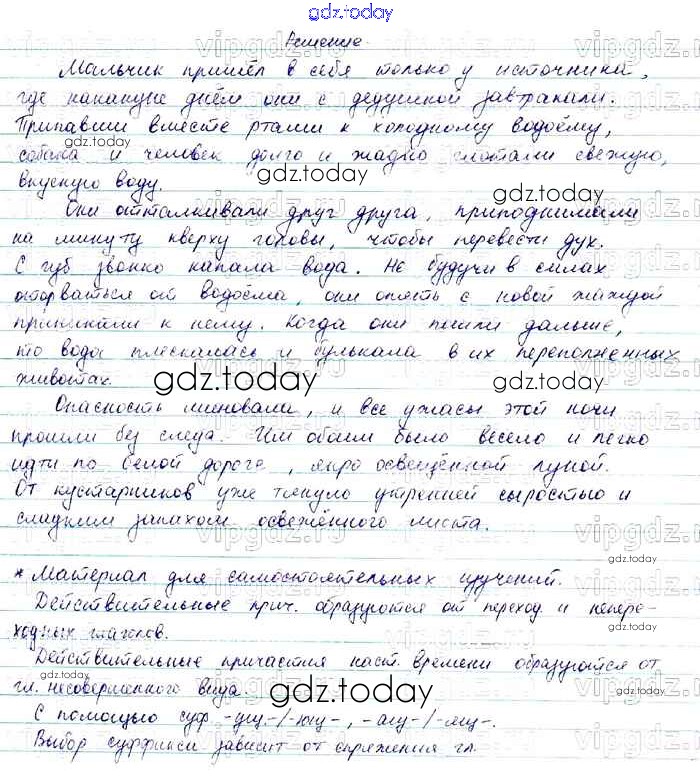 gdz.today
Решение.
Мальчик пришёл в себя только у источника,
где накануне днём они с дедушкой завтракали.
Припавши вместе ртами к холодному водоёму,
собака и человек долго и жадно глотали свежую,
вкусную воду.
Они отталкивали друг друга, приподнимали
на минуту кверху головы, чтобы перевести дух.
С губ звонко капала вода. Не будучи в силах
оторваться от водоёма, они опять с новой жаждой
приникали к нему. Когда они пошли дальше,
то вода плескалась и булькала в их переполненных
животах.
Опасность миновала, и все ужасы этой ночи
прошли без следа. Им обоим было весело и легко
идти по белой дороге, ярко освещённой луной.
От кустарников уже тянуло утренней сыростью и
сладким запахом освежённого листа.
* Материал для самостоятельных изучений.
Действительные прич. образуются от переход. и непере-
ходных глаголов.
Действительные причастия наст. времени образуются от
гл. несовершенного вида.
С помощью суф. -ущ-/-ющ-, -ащ-/-ящ-.
Выбор суффикса зависит от спряжения гл.